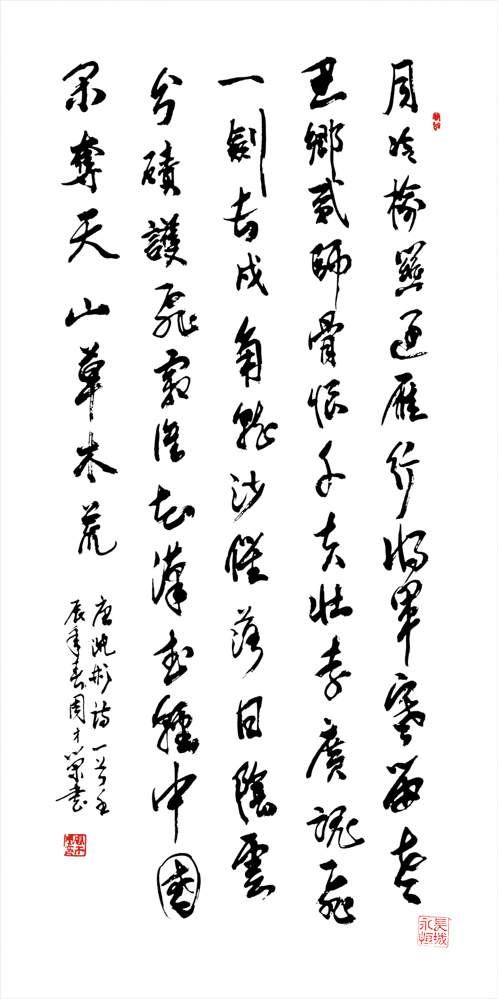 月冷榆關過雁行將軍寒笛老
思鄉貳師骨恨千夫壯李廣魂飛
一劍長戍角就沙催落日陰雲
分磧護飛霜誰知漢武輕中國
閑奪天山草木荒
唐沈彬詩一首壬
辰年春周才榮書
長城
永恒